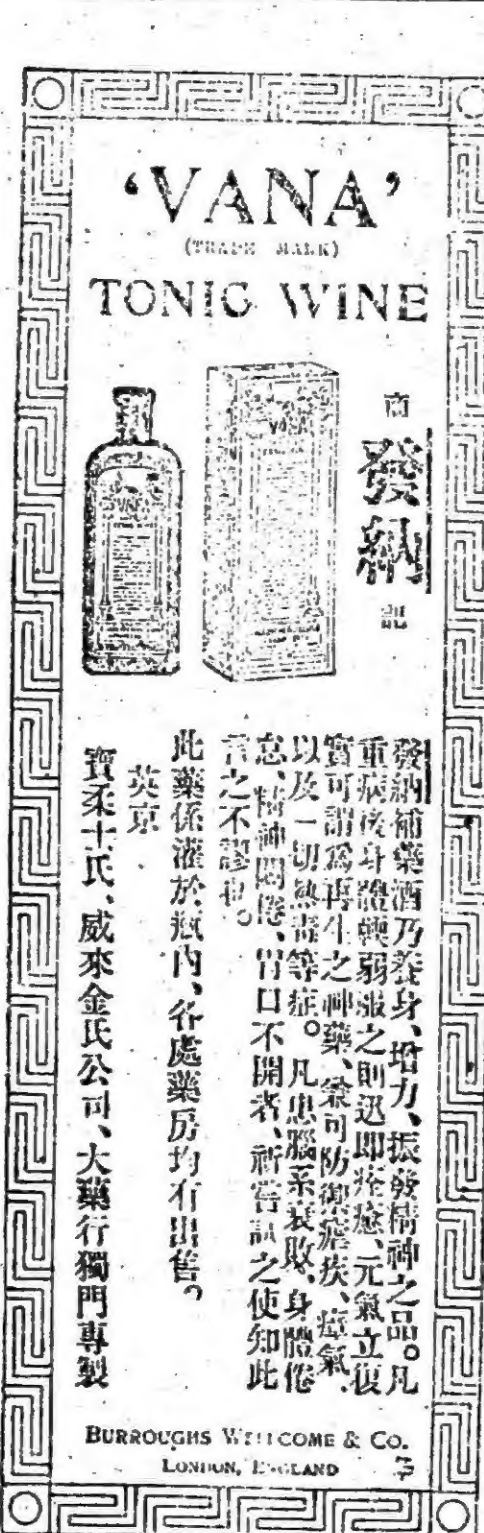 ‘VANA’
(TRADE MARK)
TONIC WINE
商
發納
標
發納補藥酒乃養身、增力、振發精神之品。凡
重病後身體輭弱服之則迅即痊癒、元氣立復
實可謂爲再生之神藥、兼可防禦瘧疾、瘴氣、
以及一切熱毒等症。凡患腦系衰敗、身體倦
怠、精神困倦、胃口不開者、祈嘗試之使知此
言之不謬也。
此藥係灌於瓶內、各處藥房均有出售。
英京
寶柔士氏、威來金氏公司、大藥行獨門專製
BURROUGHS WELLCOME & CO.
LONDON, ENGLAND